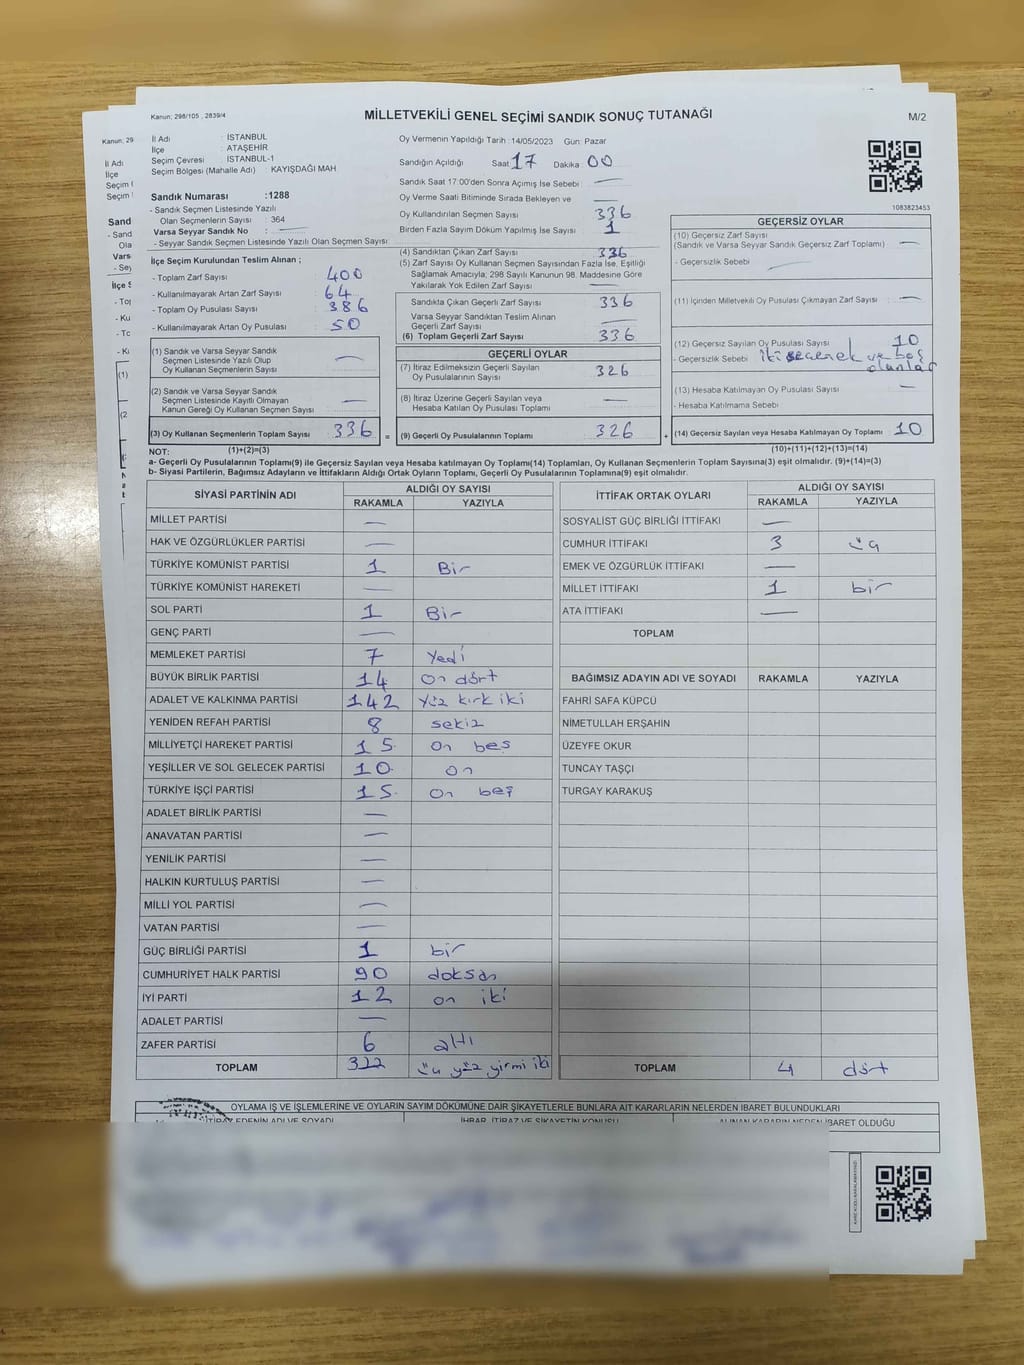 Kanun; 298/105 , 2839/4
MİLLETVEKİLİ GENEL SEÇİMİ SANDIK SONUÇ TUTANAĞI
M/2
Kanun; 29
İl Adı
İlçe
Seçim
Seçim
Sand
- Sand
Ola
Vars
- Sey
İlçe S
- Top
- Ku
- To
- Kı
(1)
(2
İl Adı : İSTANBUL
İlçe : ATAŞEHİR
Seçim Çevresi : İSTANBUL-1
Seçim Bölgesi (Mahalle Adı) : KAYIŞDAĞI MAH
Sandık Numarası :1288
- Sandık Seçmen Listesinde Yazılı
Olan Seçmenlerin Sayısı : 364
Varsa Seyyar Sandık No : —
- Seyyar Sandık Seçmen Listesinde Yazılı Olan Seçmen Sayısı:
İlçe Seçim Kurulundan Teslim Alınan ;
- Toplam Zarf Sayısı : 400
- Kullanılmayarak Artan Zarf Sayısı : 64
- Toplam Oy Pusulası Sayısı : 386
- Kullanılmayarak Artan Oy Pusulası : 50
(1) Sandık ve Varsa Seyyar Sandık
Seçmen Listesinde Yazılı Olup
Oy Kullanan Seçmenlerin Sayısı : —
(2) Sandık ve Varsa Seyyar Sandık
Seçmen Listesinde Kayıtlı Olmayan
Kanun Gereği Oy Kullanan Seçmen Sayısı : —
(3) Oy Kullanan Seçmenlerin Toplam Sayısı : 336
Oy Vermenin Yapıldığı Tarih : 14/05/2023 Gün: Pazar
Sandığın Açıldığı Saat 17 Dakika 00
Sandık Saat 17:00'den Sonra Açımış İse Sebebi : —
Oy Verme Saati Bitiminde Sırada Bekleyen ve
Oy Kullandırılan Seçmen Sayısı 336
Birden Fazla Sayım Döküm Yapılmış İse Sayısı : 1
(4) Sandıktan Çıkan Zarf Sayısı : 336
(5) Zarf Sayısı Oy Kullanan Seçmen Sayısından Fazla İse, Eşitliği
Sağlamak Amacıyla; 298 Sayılı Kanunun 98. Maddesine Göre
Yakılarak Yok Edilen Zarf Sayısı : —
Sandıkta Çıkan Geçerli Zarf Sayısı : 336
Varsa Seyyar Sandıktan Teslim Alınan
Geçerli Zarf Sayısı : —
(6) Toplam Geçerli Zarf Sayısı : 336
GEÇERLİ OYLAR
(7) İtiraz Edilmeksizin Geçerli Sayılan
Oy Pusulasının Sayısı : 326
(8) İtiraz Üzerine Geçerli Sayılan veya
Hesaba Katılan Oy Pusulası Toplamı : —
= (9) Geçerli Oy Pusulalarının Toplamı : 326
1083823453
GEÇERSİZ OYLAR
(10) Geçersiz Zarf Sayısı
(Sandık ve Varsa Seyyar Sandık Geçersiz Zarf Toplamı) : —
- Geçersizlik Sebebi :
(11) İçinden Milletvekili Oy Pusulası Çıkmayan Zarf Sayısı : —
(12) Geçersiz Sayılan Oy Pusulası Sayısı : 10
- Geçersizlik Sebebi : iki seçenek ve boş
olanlar
(13) Hesaba Katılmayan Oy Pusulası Sayısı : —
- Hesaba Katılmama Sebebi :
+ (14) Geçersiz Sayılan veya Hesaba Katılmayan Oy Toplamı : 10
NOT: (1)+(2)=(3) (10)+(11)+(12)+(13)=(14)
a- Geçerli Oy Pusulalarının Toplamı(9) ile Geçersiz Sayılan veya Hesaba katılmayan Oy Toplamı(14) Toplamları, Oy Kullanan Seçmenlerin Toplam Sayısına(3) eşit olmalıdır. (9)+(14)=(3)
b- Siyasi Partilerin, Bağımsız Adayların ve İttifakların Aldığı Ortak Oyların Toplamı, Geçerli Oy Pusulalarının Toplamına(9) eşit olmalıdır.
SİYASİ PARTİNİN ADI ALDIĞI OY SAYISI
RAKAMLA YAZIYLA
MİLLET PARTİSİ —
HAK VE ÖZGÜRLÜKLER PARTİSİ —
TÜRKİYE KOMÜNİST PARTİSİ 1 Bir
TÜRKİYE KOMÜNİST HAREKETİ —
SOL PARTİ 1 Bir
GENÇ PARTİ —
MEMLEKET PARTİSİ 7 Yedi
BÜYÜK BİRLİK PARTİSİ 14 On dört
ADALET VE KALKINMA PARTİSİ 142 yüz kırk iki
YENİDEN REFAH PARTİSİ 8 sekiz
MİLLİYETÇİ HAREKET PARTİSİ 15 on beş
YEŞİLLER VE SOL GELECEK PARTİSİ 10 on
TÜRKİYE İŞÇİ PARTİSİ 15 on beş
ADALET BİRLİK PARTİSİ —
ANAVATAN PARTİSİ —
YENİLİK PARTİSİ —
HALKIN KURTULUŞ PARTİSİ —
MİLLİ YOL PARTİSİ —
VATAN PARTİSİ —
GÜÇ BİRLİĞİ PARTİSİ 1 bir
CUMHURİYET HALK PARTİSİ 90 doksan
İYİ PARTİ 12 on iki
ADALET PARTİSİ —
ZAFER PARTİSİ 6 altı
TOPLAM 322 üç yüz yirmi iki
İTTİFAK ORTAK OYLARI ALDIĞI OY SAYISI
RAKAMLA YAZIYLA
SOSYALİST GÜÇ BİRLİĞİ İTTİFAKI —
CUMHUR İTTİFAKI 3 üç
EMEK VE ÖZGÜRLÜK İTTİFAKI —
MİLLET İTTİFAKI 1 bir
ATA İTTİFAKI —
TOPLAM
BAĞIMSIZ ADAYIN ADI VE SOYADI RAKAMLA YAZIYLA
FAHRİ SAFA KÜPCÜ
NİMETULLAH ERŞAHİN
ÜZEYFE OKUR
TUNCAY TAŞÇI
TURGAY KARAKUŞ
TOPLAM 4 dört
OYLAMA İŞ VE İŞLEMLERİNE VE OYLARIN SAYIM DÖKÜMÜNE DAİR ŞİKAYETLERLE BUNLARA AİT KARARLARIN NELERDEN İBARET BULUNDUKLARI
İTİRAZ EDENİN ADI VE SOYADI İHBAR, İTİRAZ VE ŞİKAYETİN KONUSU ALINAN KARARIN NEDEN İBARET OLDUĞU